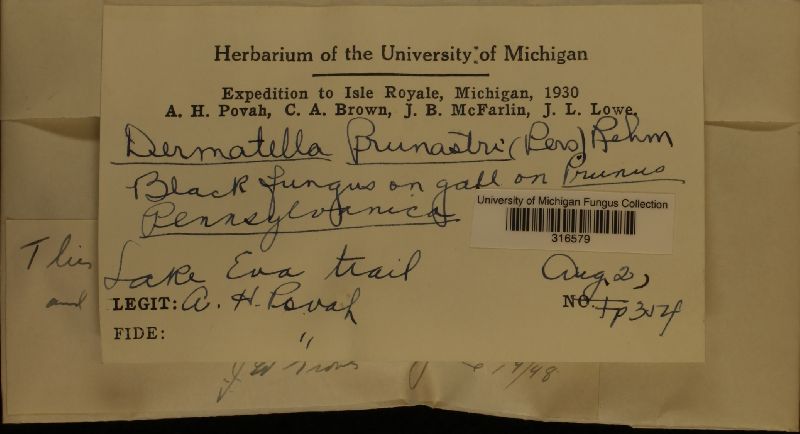 Herbarium of the University of Michigan
Expedition to Isle Royale, Michigan, 1930
A. H. Povah, C. A. Brown, J. B. McFarlin, J. L. Lowe,
Dermatella Prunastri (Pers) Rehm
Black fungus on gall on Prunus
Pennsylvanica
University of Michigan Fungus Collection
316579
Lake Eva trail Aug. 2,
and
LEGIT: A. H. Povah NO. Fp 354
FIDE: "